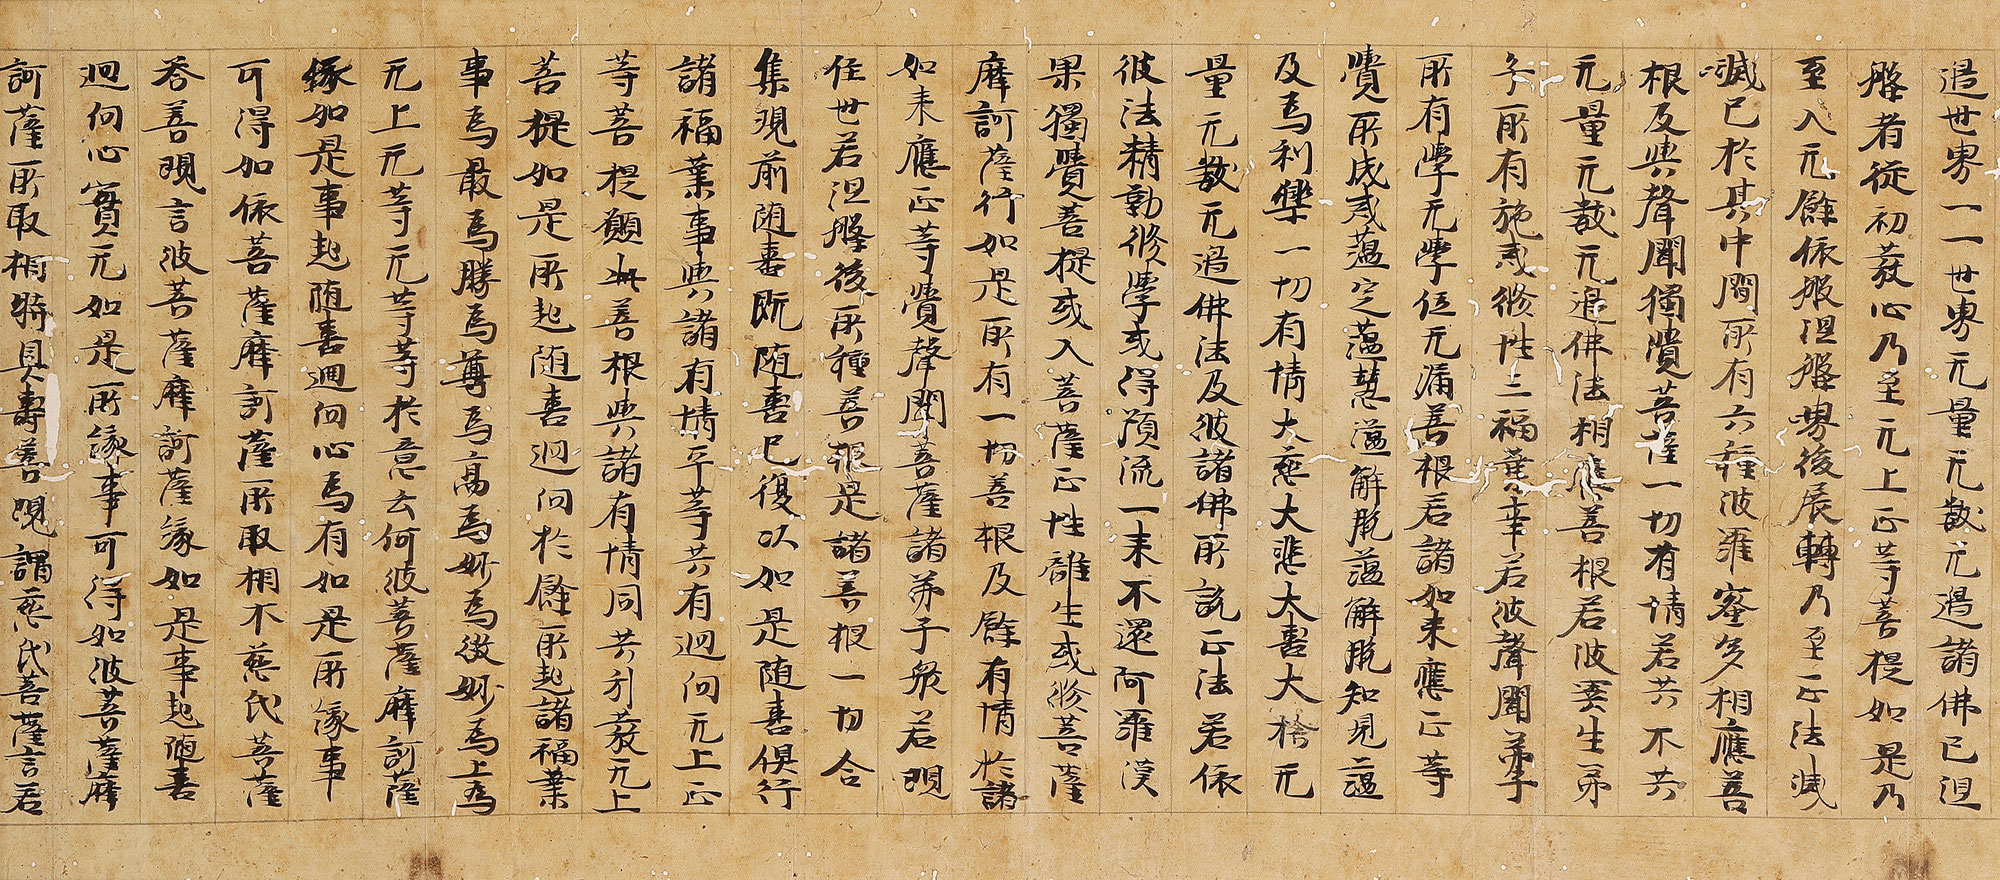 過世界一一世界无量无數无邊諸佛已涅
槃者從初發心乃至无上正等菩提如是乃
至入无餘依般涅槃界後展轉乃至正法滅
滅已於其中間所有六種波羅蜜多相應善
根及與聲聞獨覺菩薩一切有情若共不共
无量无數无邊佛法相應善根若彼異生弟
子所有施戒修性三福業事若彼聲聞弟子
所有學无學位无漏善根若諸如來應正等
覺所成戒蘊定蘊慧蘊解脫蘊解脫知見蘊
及為利樂一切有情大慈大悲大喜大捨无
量无數无邊佛法及彼諸佛所說正法若依
彼法精勤修學或得預流一來不還阿羅漢
果獨覺菩提或入菩薩正性離生或修菩薩
摩訶薩行如是所有一切善根及餘有情於諸
如來應正等覺聲聞菩薩諸弟子眾若現
住世若涅槃後所種善根是諸善根一切合
集現前隨喜既隨喜已復以如是隨喜俱行
諸福業事與諸有情平等共有迴向无上正
等菩提願此善根與諸有情同共引發无上
菩提如是所起隨喜迴向於餘所起諸福業
事為最為勝為尊為高為妙為微妙為上為
无上无等无等等於意云何彼菩薩摩訶薩
緣如是事起隨喜迴向心為有如是所緣事
可得如依菩薩摩訶薩所取相不慈氏菩薩
答善現言彼菩薩摩訶薩緣如是事起隨喜
迴向心實无如是所緣事可得如彼菩薩摩
訶薩所取相時具壽善現謂慈氏菩薩言若